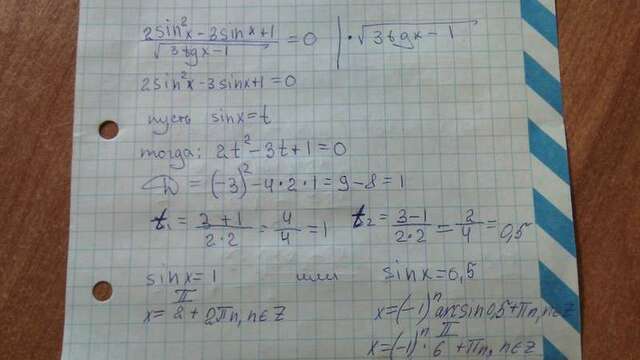 2sin²x-3sinx+1 / √(3tgx-1) = 0 | • √(3tgx-1)
2sin²x-3sinx+1=0
пусть sinx=t
тогда: 2t²-3t+1=0
D = (-3)²-4•2•1=9-8=1
t₁ = (3+1)/(2•2) = 4/4 = 1 t₂ = (3-1)/(2•2) = 2/4 = 0,5
sinx=1 или sinx=0,5
x = π/2 + 2πn, n∈Z x=(-1)ⁿ arcsin0,5+πn, n∈Z
x=(-1)ⁿ • π/6 + πn, n∈Z